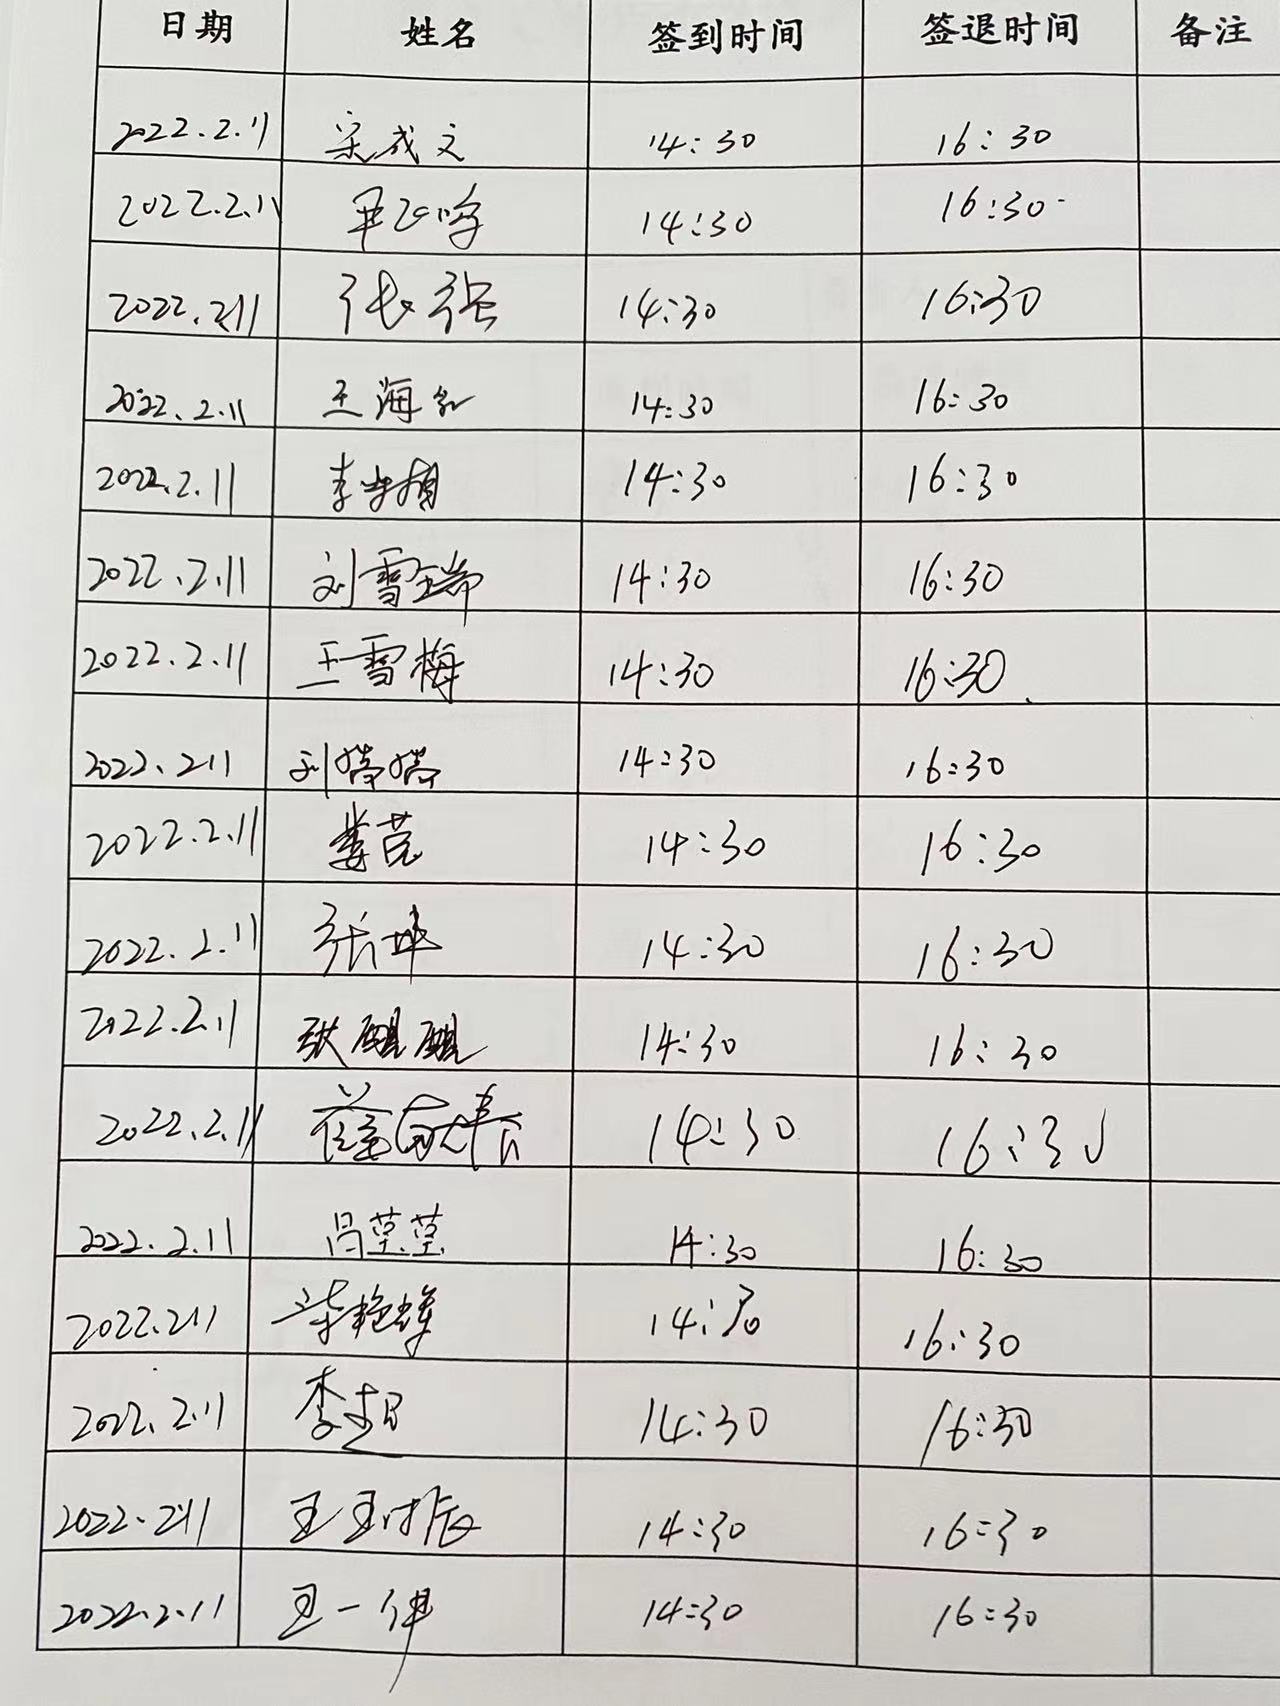 日期 姓名 签到时间 签退时间 备注
2022.2.11 宋成文 14:30 16:30
2022.2.11 14:30 16:30
2022.2.11 张强 14:30 16:30
2022.2.11 王海红 14:30 16:30
2022.2.11 李 14:30 16:30
2022.2.11 刘雪瑞 14:30 16:30
2022.2.11 王雪梅 14:30 16:30
2022.2.11 刘婷婷 14:30 16:30
2022.2.11 娄芸 14:30 16:30
2022.2.11 张坤 14:30 16:30
2022.2.11 张醒醒 14:30 16:30
2022.2.11 14:30 16:30
2022.2.11 吕莹莹 14:30 16:30
2022.2.11 14:30 16:30
2022.2.11 李超 14:30 16:30
2022.2.11 王 14:30 16:30
2022.2.11 王一伊 14:30 16:30